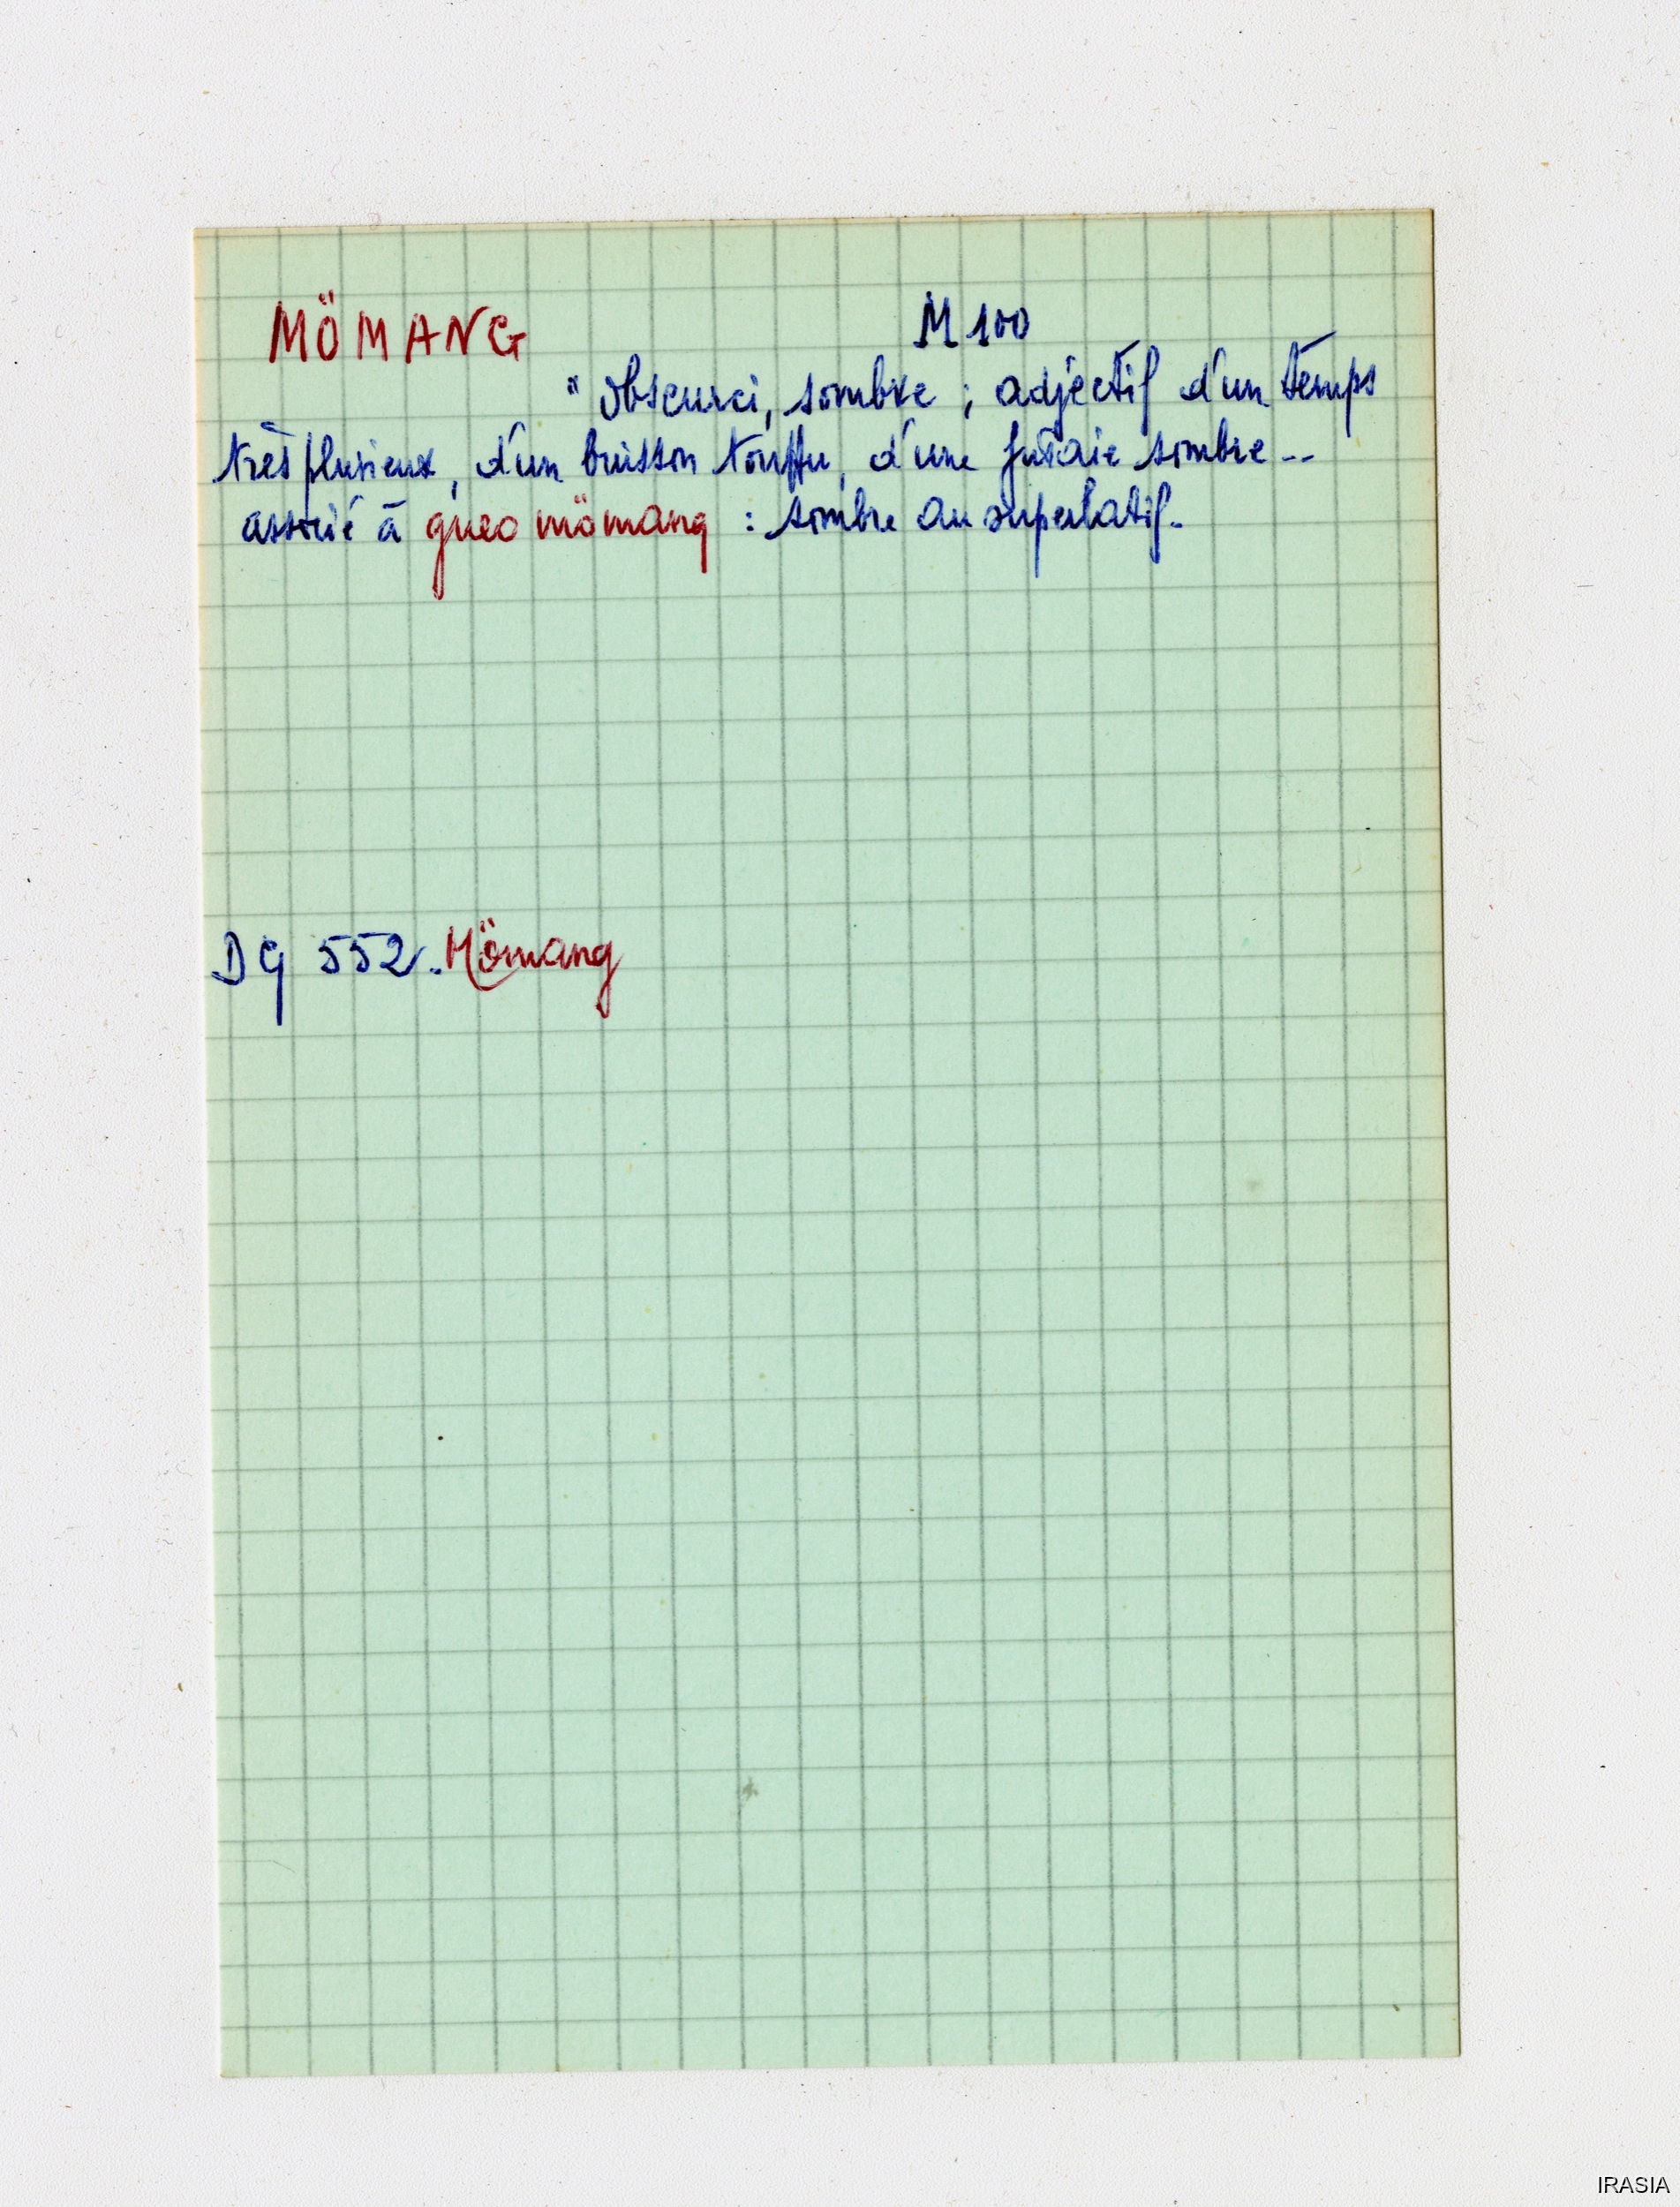 MÖMANG M 100
" Obscurci, sombre ; adjectif d'un temps
très pluvieux, d'un buisson touffu, d'une futaie sombre --
associé à gueo mömang : sombre au superlatif.
DG 552. Mömang
IRASIA